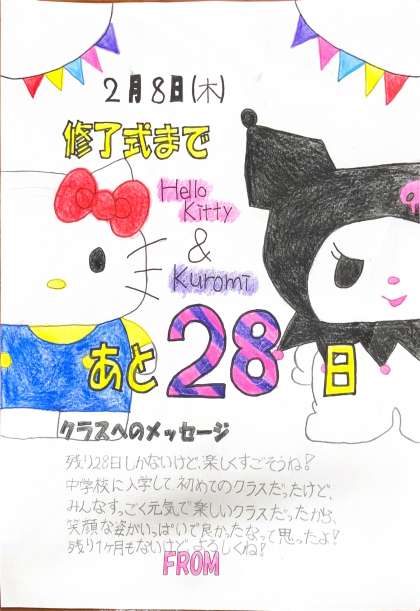 2月8日(木)
修了式まで
Hello
Kitty
&
Kuromi
あと28日
クラスへのメッセージ
残り28日しかないけど、楽しくすごそうね!
中学校に入学して初めてのクラスだったけど、
みんなすっごく元気で楽しいクラスだったから、
笑顔な姿がいっぱいで良かったなって思ったよ!
残り1ヶ月もないけどよろしくね!
FROM